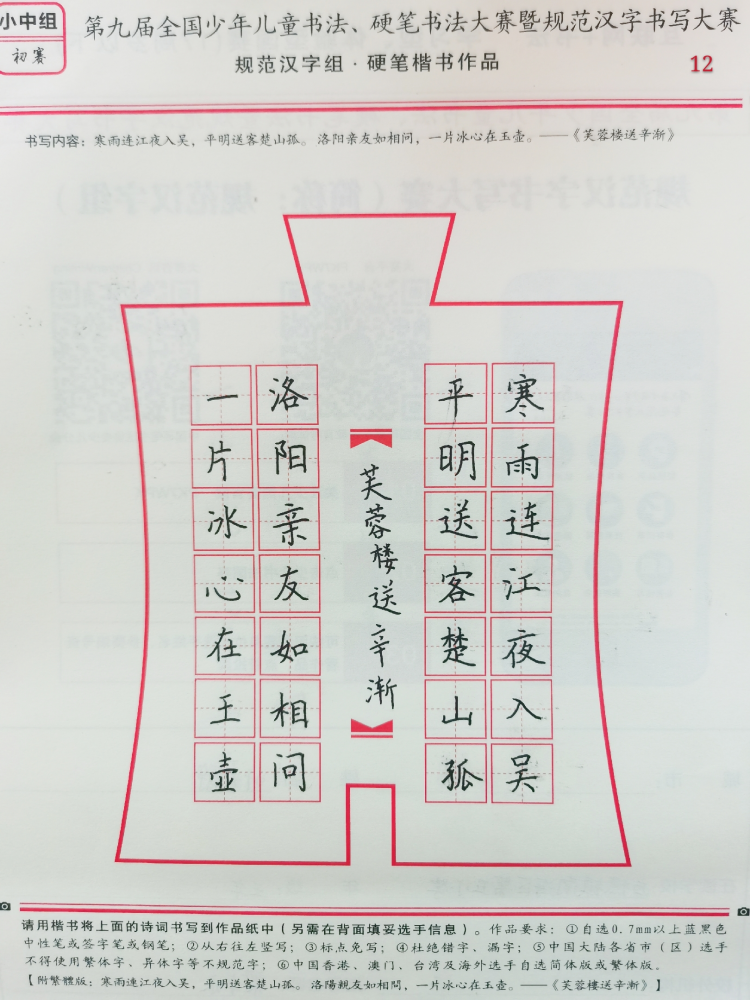 小中组
初赛
第九届全国少年儿童书法、硬笔书法大赛暨规范汉字书写大赛
规范汉字组·硬笔楷书作品
12
书写内容：寒雨连江夜入吴，平明送客楚山孤。洛阳亲友如相问，一片冰心在玉壶。——《芙蓉楼送辛渐》
寒雨连江夜入吴
平明送客楚山孤
芙蓉楼送辛渐
洛阳亲友如相问
一片冰心在王壶
请用楷书将上面的诗词书写到作品纸中（另需在背面填妥选手信息）。作品要求：①自选0.7mm以上蓝黑色
中性笔或签字笔或钢笔；②从右往左竖写；③标点免写；④杜绝错字、漏字；⑤中国大陆各省市（区）选手
不得使用繁体字、异体字等不规范字；⑥中国香港、澳门、台湾及海外选手自选简体版或繁体版。
【附繁體版：寒雨連江夜入吳，平明送客楚山孤。洛陽親友如相問，一片冰心在玉壺。——《芙蓉樓送辛漸》】